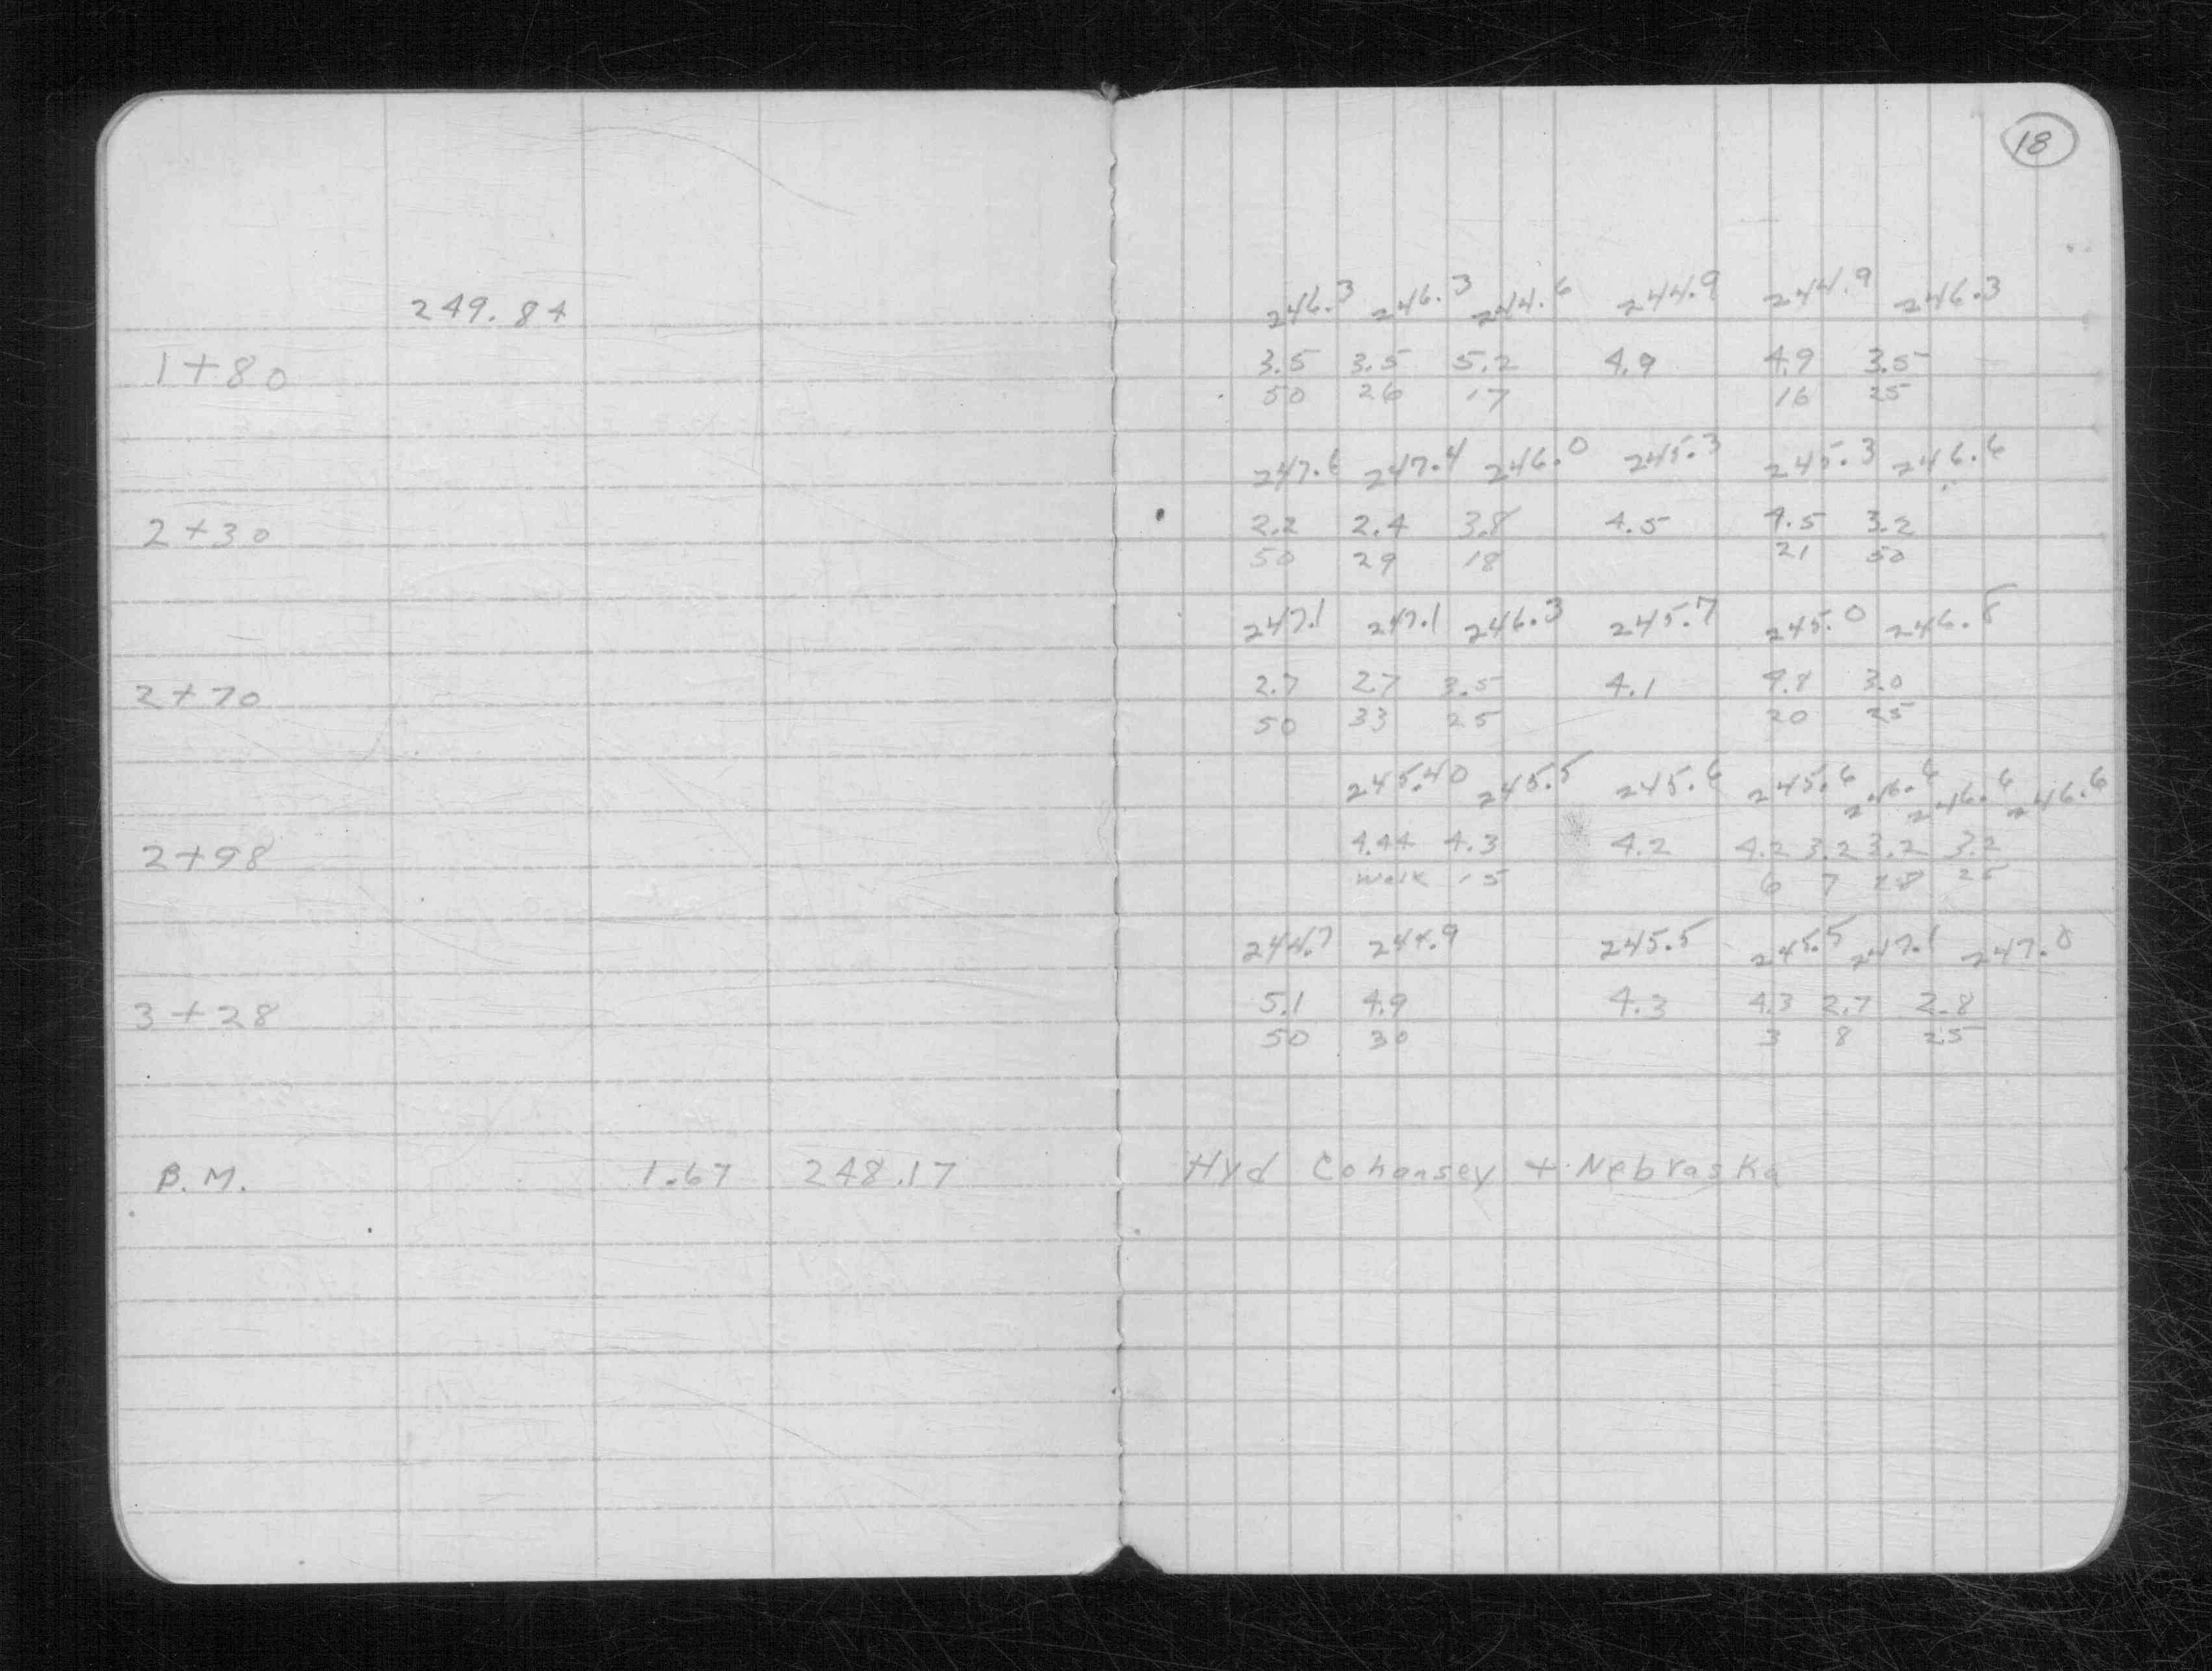 18
249.84 246.3 246.3 244.6 244.9 244.9 246.3
1+80 3.5 3.5 5.2 4.9 4.9 3.5
50 26 17 16 25
247.6 247.4 246.0 245.3 245.3 246.6
2+30 2.2 2.4 3.8 4.5 4.5 3.2
50 29 18 21 50
247.1 247.1 246.3 245.7 245.0 246.8
2+70 2.7 2.7 3.5 4.1 4.8 3.0
50 33 25 20 25
245.40 245.5 245.6 245.6 246.6 246.6 246.6
2+98 4.44 4.3 4.2 4.2 3.2 3.2 3.2
walk 15 6 7 25
244.7 244.9 245.5 245.5 247.1 247.0
3+28 5.1 4.9 4.3 4.3 2.7 2.8
50 30 3 8 25
B.M. 1.67 248.17 Hyd Cohansey + Nebraska